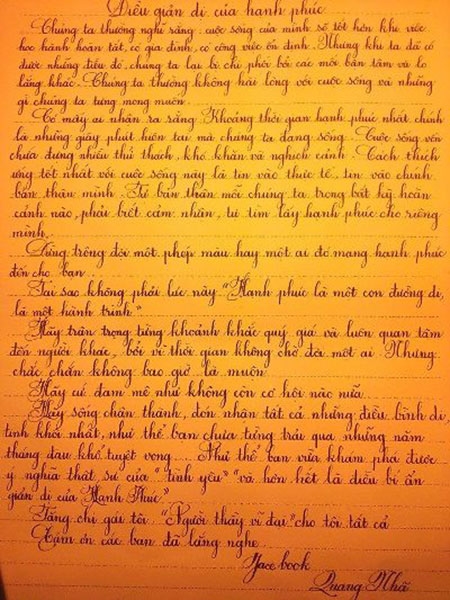 Điều giản dị của hạnh phúc
Chúng ta thường nghĩ rằng cuộc sống của mình sẽ tốt hơn khi việc
học hành hoàn tất, có gia đình, có công việc ổn định. Nhưng khi ta đã có
được những điều đó, chúng ta lại bị chi phối bởi các mối bận tâm và lo
lắng khác. Chúng ta thường không hài lòng với cuộc sống và những
gì chúng ta từng mong muốn.
Có mấy ai nhận ra rằng Khoảng thời gian hạnh phúc nhất chính
là những giây phút hiện tại mà chúng ta đang sống. Cuộc sống vốn
chứa đựng nhiều thử thách, khó khăn và nghịch cảnh. Cách thích
ứng tốt nhất với cuộc sống này là tin vào thực tế, tin vào chính
bản thân mình. Từ bản thân mỗi chúng ta trong bất kỳ hoàn
cảnh nào, phải biết cảm nhận, tự tìm lấy hạnh phúc cho riêng
mình.
Đừng trông đợi một phép màu hay một ai đó mang hạnh phúc
đến cho bạn.
Tại sao không phải lúc này "Hạnh phúc là một con đường đi,
là một hành trình"
Hãy trân trọng từng khoảnh khắc quý giá và luôn quan tâm
đến người khác, bởi vì thời gian không chờ đợi một ai. Nhưng
chắc chắn không bao giờ là muộn.
Hãy cứ đam mê như không còn cơ hội nào nữa.
Hãy sống chân thành, đón nhận tất cả những điều bình dị,
tinh khôi nhất, như thể bạn chưa từng trải qua những năm
tháng đau khổ tuyệt vọng .... Như thể bạn vừa khám phá được
ý nghĩa thật sự của "tình yêu" "và hơn hết là điều bí ẩn
giản dị của Hạnh Phúc"
Tặng chị gái tôi "Người thầy vĩ đại" cho tôi tất cả
Cảm ơn các bạn đã lắng nghe.
Face book
Quang Nhã